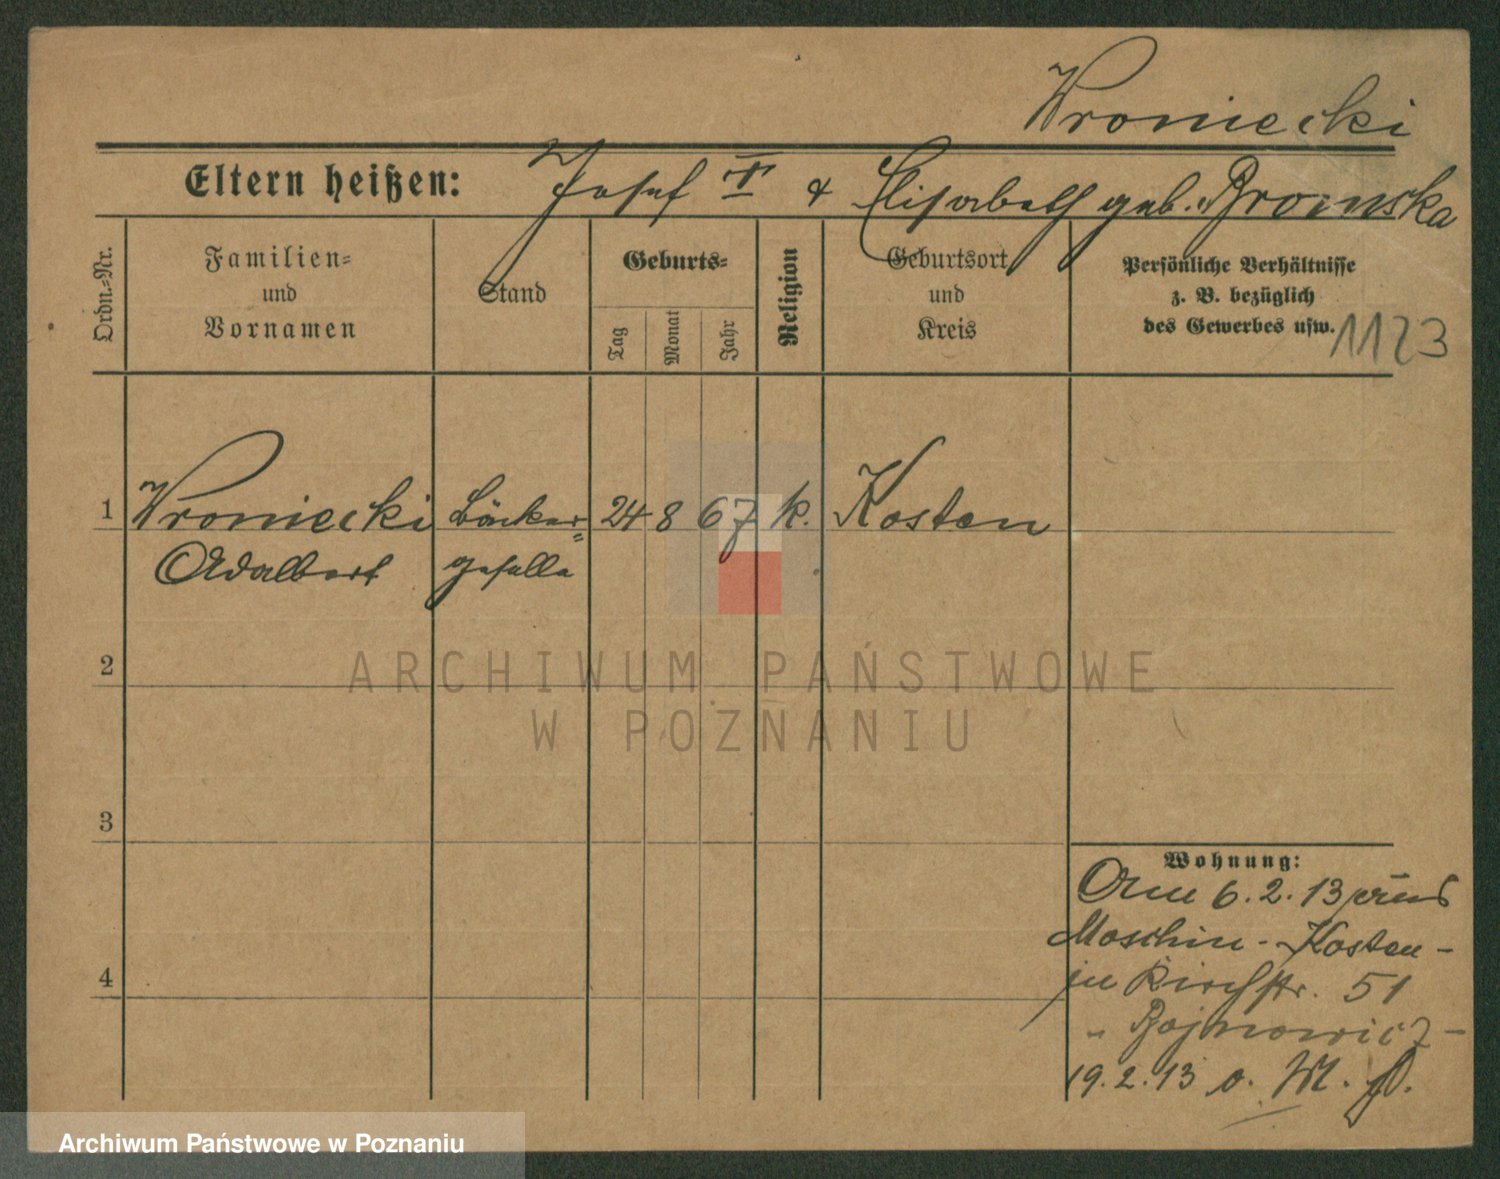 Wroniecki
Eltern heißen: Josef I & Elisabeth geb.
Ordn.-Nr.
Familien-
und
Vornamen
Stand
Geburts-
Tag
Monat
Jahr
Religion
Geburtsort
und
Kreis
Persönliche Verhältnisse
z. B. bezüglich
des Gewerbes usw.
1123
1 Wroniecki Bäcker= 24 8 67 k. Kosten
Adalbert geselle
2
3
4
Wohnung:
6.2.13
Moschin - Kosten -
in Kirchstr. 51
" Bajnowicz -
19.2.13 o. W. P.
ARCHIWUM PAŃSTWOWE
W POZNANIU
Archiwum Państwowe w Poznaniu